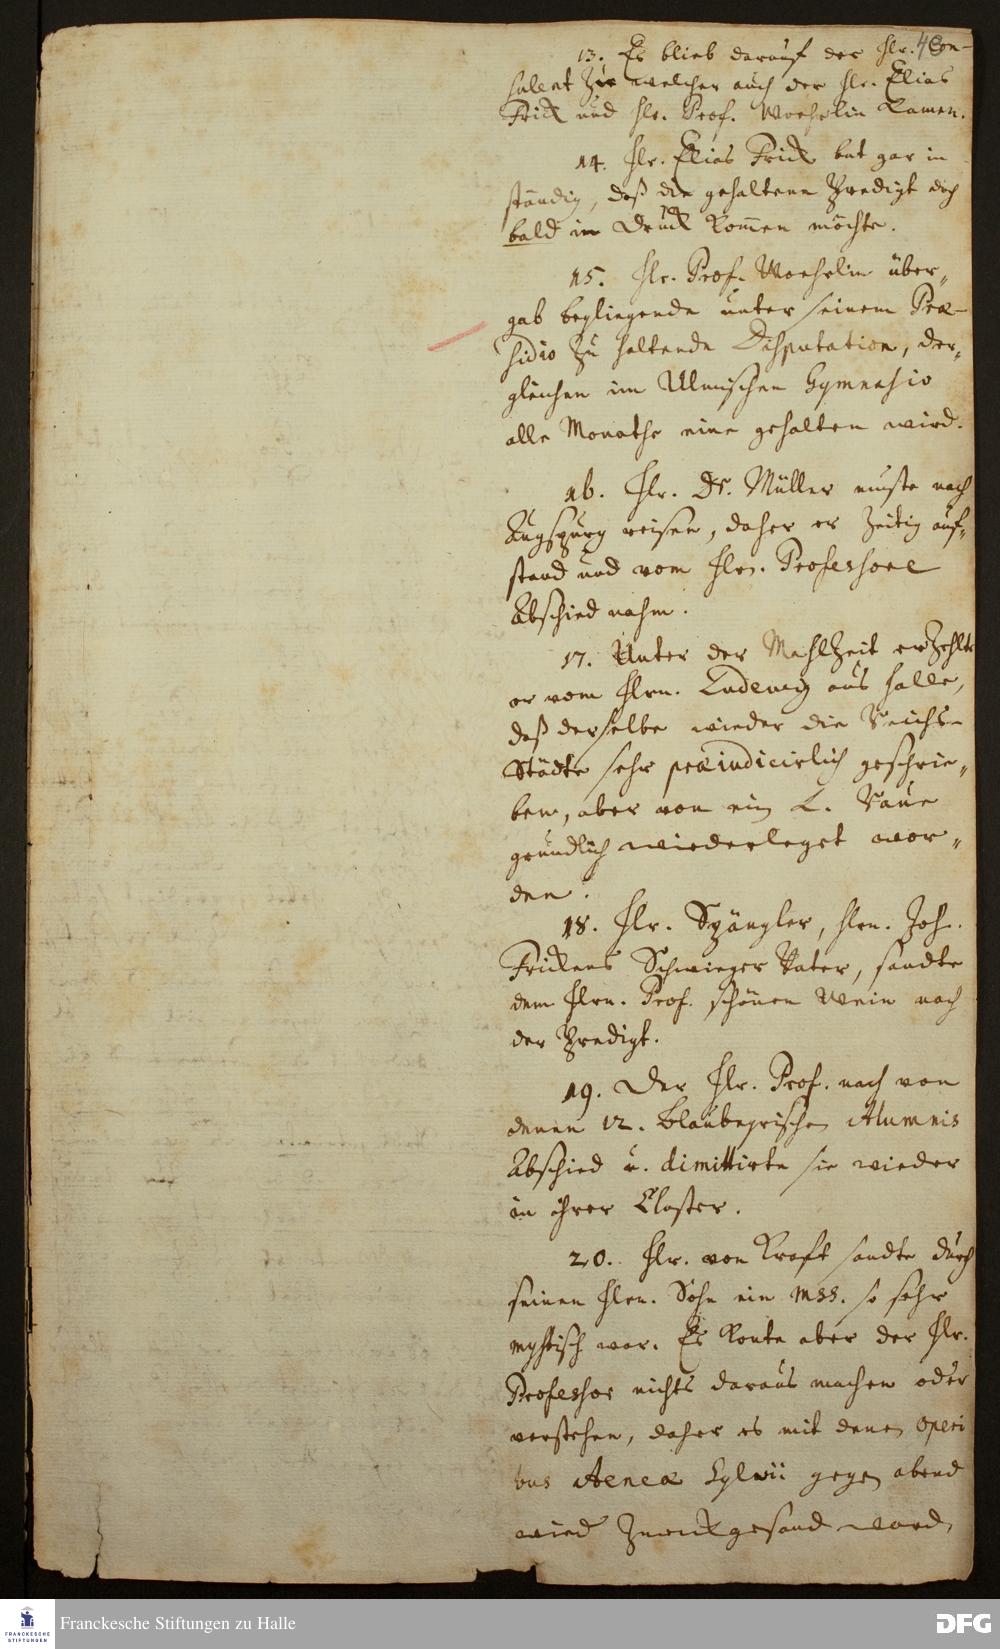 13. Es blieb darauf der Hr. Con-
sulent zur welcher auch der Hr. Elias
Frick und Hr. Prof. Woehrlin kamen.
14. Hr. Elias Frick bat gar in
ständig, daß die gehaltene Predigt doch
bald in Druck kom̄en möchte.
15. Hr. Prof. Woehrlin über„
gab beyliegende unter seinem Præ-
sidio zu haltende Disputation, der„
gleichen im Ulmischen Gymnasio
alle Monathe eine gehalten wird.
16. Hr. Dr. Müller muste nach
Augspurg reisen, daher er zeitig auf„
stand und vom Hrn. Professore
Abschied nahm.
17. Unter der Mahlzeit erzehlte
er vom Hrn. Ludewig aus Halle,
daß derselbe wieder die Reichs-
Städte sehr præiudicirlich geschrie„
ben, aber von ein L. Raue
gründlich wiederleget wor„
den.
18. Hr. Spängler, Hrn. Joh.
Frickens Schwieger Vater, sandte
dem Hrn. Prof. schönen Wein nach
der Predigt.
19. Der Hr. Prof. nach von
denen 12. Blaubeyrischen Alumnis
Abschied u. dimittirte sie wieder
in ihrer Closter.
20. Hr. von Kraft sandte durch
seinen Hrn. Sohn ein MSS. so sehr
mystisch war. Es konte aber der Hr.
Professor nichts daraus machen oder
verstehen, daher es mit denen Operi
bus Aeneæ Sylvii gegen abend
wied zurückgesand word.
Franckesche Stiftungen zu Halle
FRANCKESCHE
STIFTUNGEN
DFG